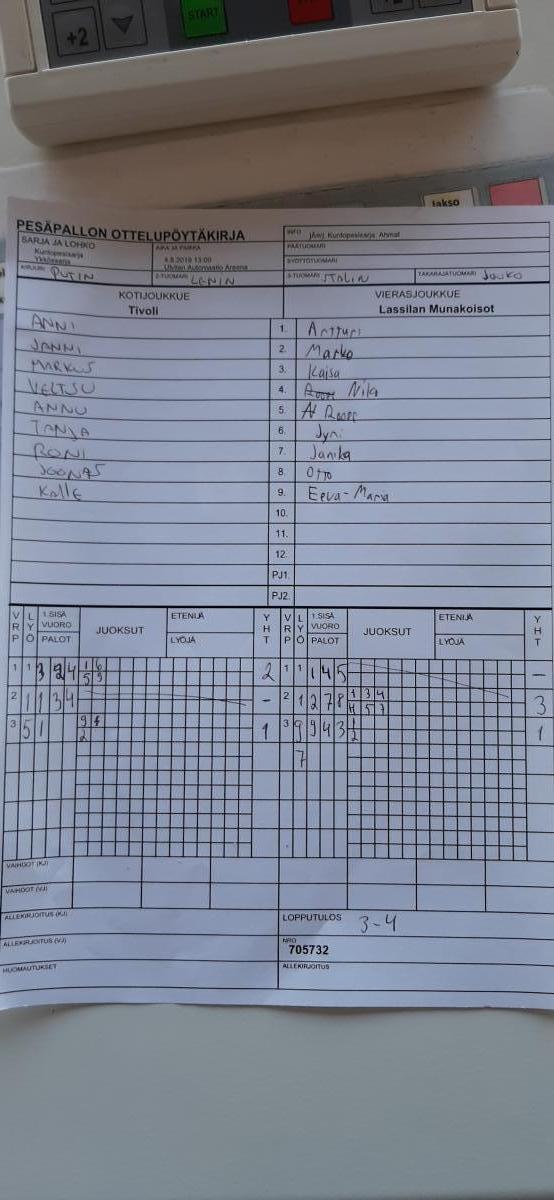 +2
START
jakso
PESÄPALLON OTTELUPÖYTÄKIRJA
SARJA JA LOHKO
Kuntopesissarja
Ykkössarja
AIKA JA PAIKKA
4.8.2019 13:00
Ulvilan Automaatio Areena
INFO
Kuntopesissarja Ahmat
PÄÄTUOMARI
SYÖTTÖTUOMARI
KIRJURI PUTIN
2-TUOMARI LENIN
3-TUOMARI STALIN
TAKARAJATUOMARI Jouko
KOTIJOUKKUE
Tivoli
VIERASJOUKKUE
Lassilan Munakoisot
ANNI 1. Artturi
JANNI 2. Marko
MARKUS 3. Kaisa
VELTSU 4. Nila
ANNU 5.
TANJA 6. Jyri
RONI 7. Janika
JOONAS 8. Otto
KALLE 9. Eeva-Maria
10.
11.
12.
PJ1.
PJ2.
VRP LYÖ 1.SISÄ VUORO PALOT JUOKSUT ETENIJÄ LYÖJÄ YHT VRP LYÖ 1.SISÄ VUORO PALOT JUOKSUT ETENIJÄ LYÖJÄ YHT
1 1 3 4 1 6 2 1 1 1 4 5 -
5 9
2 1 1 3 4 - 2 1 2 7 8 1 3 4 3
4 5 7
3 5 1 9 1 3 9 9 4 3 1 1
2 2
7
VAIHDOT (KJ)
VAIHDOT (VJ)
ALLEKIRJOITUS (KJ)
LOPPUTULOS 3-4
ALLEKIRJOITUS (VJ)
NRO
705732
HUOMAUTUKSET
ALLEKIRJOITUS